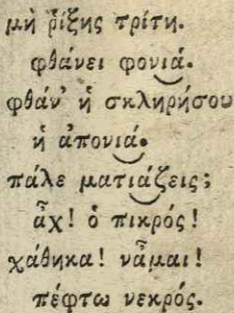 μὴ ῥίξῃς τρίτη.
φθάνει φονιά.
φθάν' ἡ σκληρήσου
ἡ ἀπονιά.
πάλε ματιάζεις;
ἄχ! ὁ πικρός!
χάθηκα! νἆμαι!
πέφτω νεκρός.